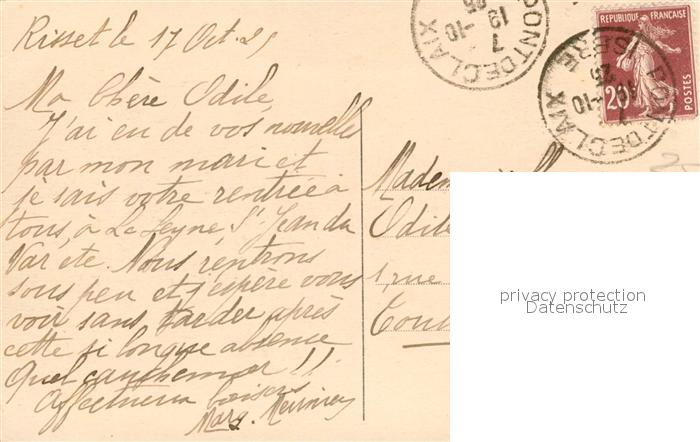 Risset le 17 Oct. 25
Ma Chère Odile,
J'ai eu de vos nouvelles
par mon mari et
je sais votre rentrée à
tous, à La Seyne, St Jean du
Var, etc. Nous rentrons
sous peu et j'espère vous
voir sans tarder après
cette si longue absence
Quel cauchemar !!
Affectueux baisers
Marg.
PONT DE CLAIX
7
19 -10
25
REPUBLIQUE FRANÇAISE
20c
POSTES
PONT DE CLAIX
ISERE
7
-10
25
Madem
Odile
1 rue
Toul
privacy protection
Datenschutz